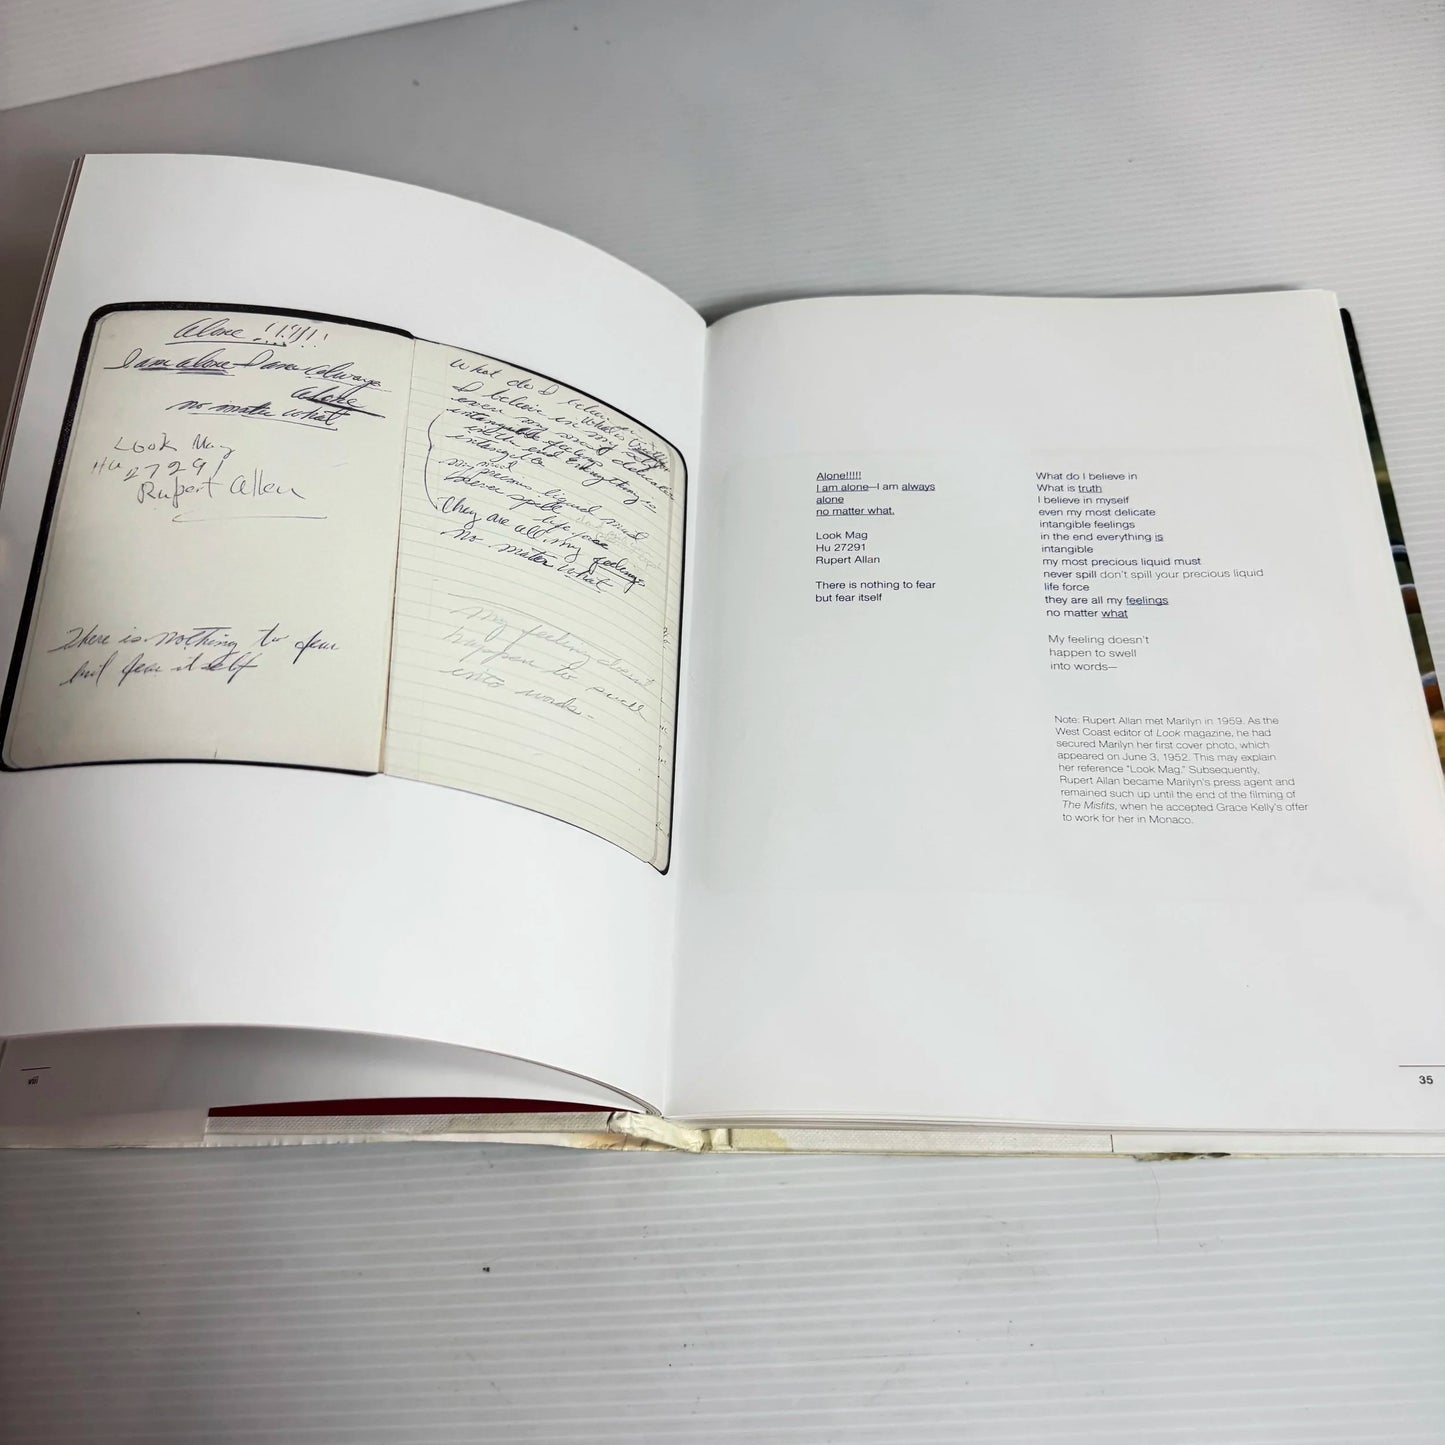 Alone !!!!!!
I am alone – I am always
alone
no matter what
Look Mag
Hu 27291
Rupert Allan
There is nothing to fear
but fear itself
What do I believe in
What is truth
I believe in myself
even my most delicate
intangible feelings
in the end everything is
intangible
my most precious liquid must
never spill
life force
they are all my feelings
no matter what
My feeling doesn't
happen to swell
into words –
viii
Alone!!!!!
I am alone—I am always
alone
no matter what.
Look Mag
Hu 27291
Rupert Allan
There is nothing to fear
but fear itself
What do I believe in
What is truth
I believe in myself
even my most delicate
intangible feelings
in the end everything is
intangible
my most precious liquid must
never spill don't spill your precious liquid
life force
they are all my feelings
no matter what
My feeling doesn't
happen to swell
into words—
Note: Rupert Allan met Marilyn in 1959. As the
West Coast editor of Look magazine, he had
secured Marilyn her first cover photo, which
appeared on June 3, 1952. This may explain
her reference "Look Mag." Subsequently,
Rupert Allan became Marilyn's press agent and
remained such up until the end of the filming of
The Misfits, when he accepted Grace Kelly's offer
to work for her in Monaco.
35